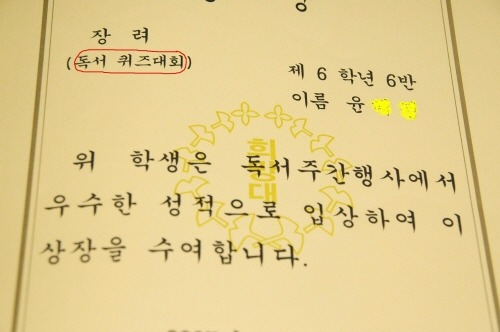 장 려
(독서 퀴즈대회)
제 6 학년 6반
이름 윤
위 학생은 독서주간행사에서
우수한 성적으로 입상하여 이
상장을 수여합니다.